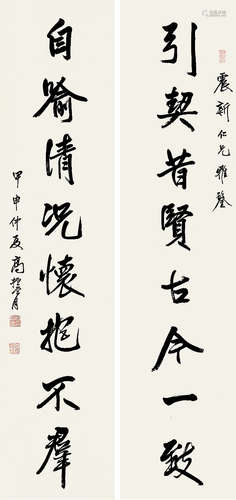 震新仁兄雅鑒
引契昔賢古今一致
自喻清況懷抱不羣
甲申仲夏高振霄